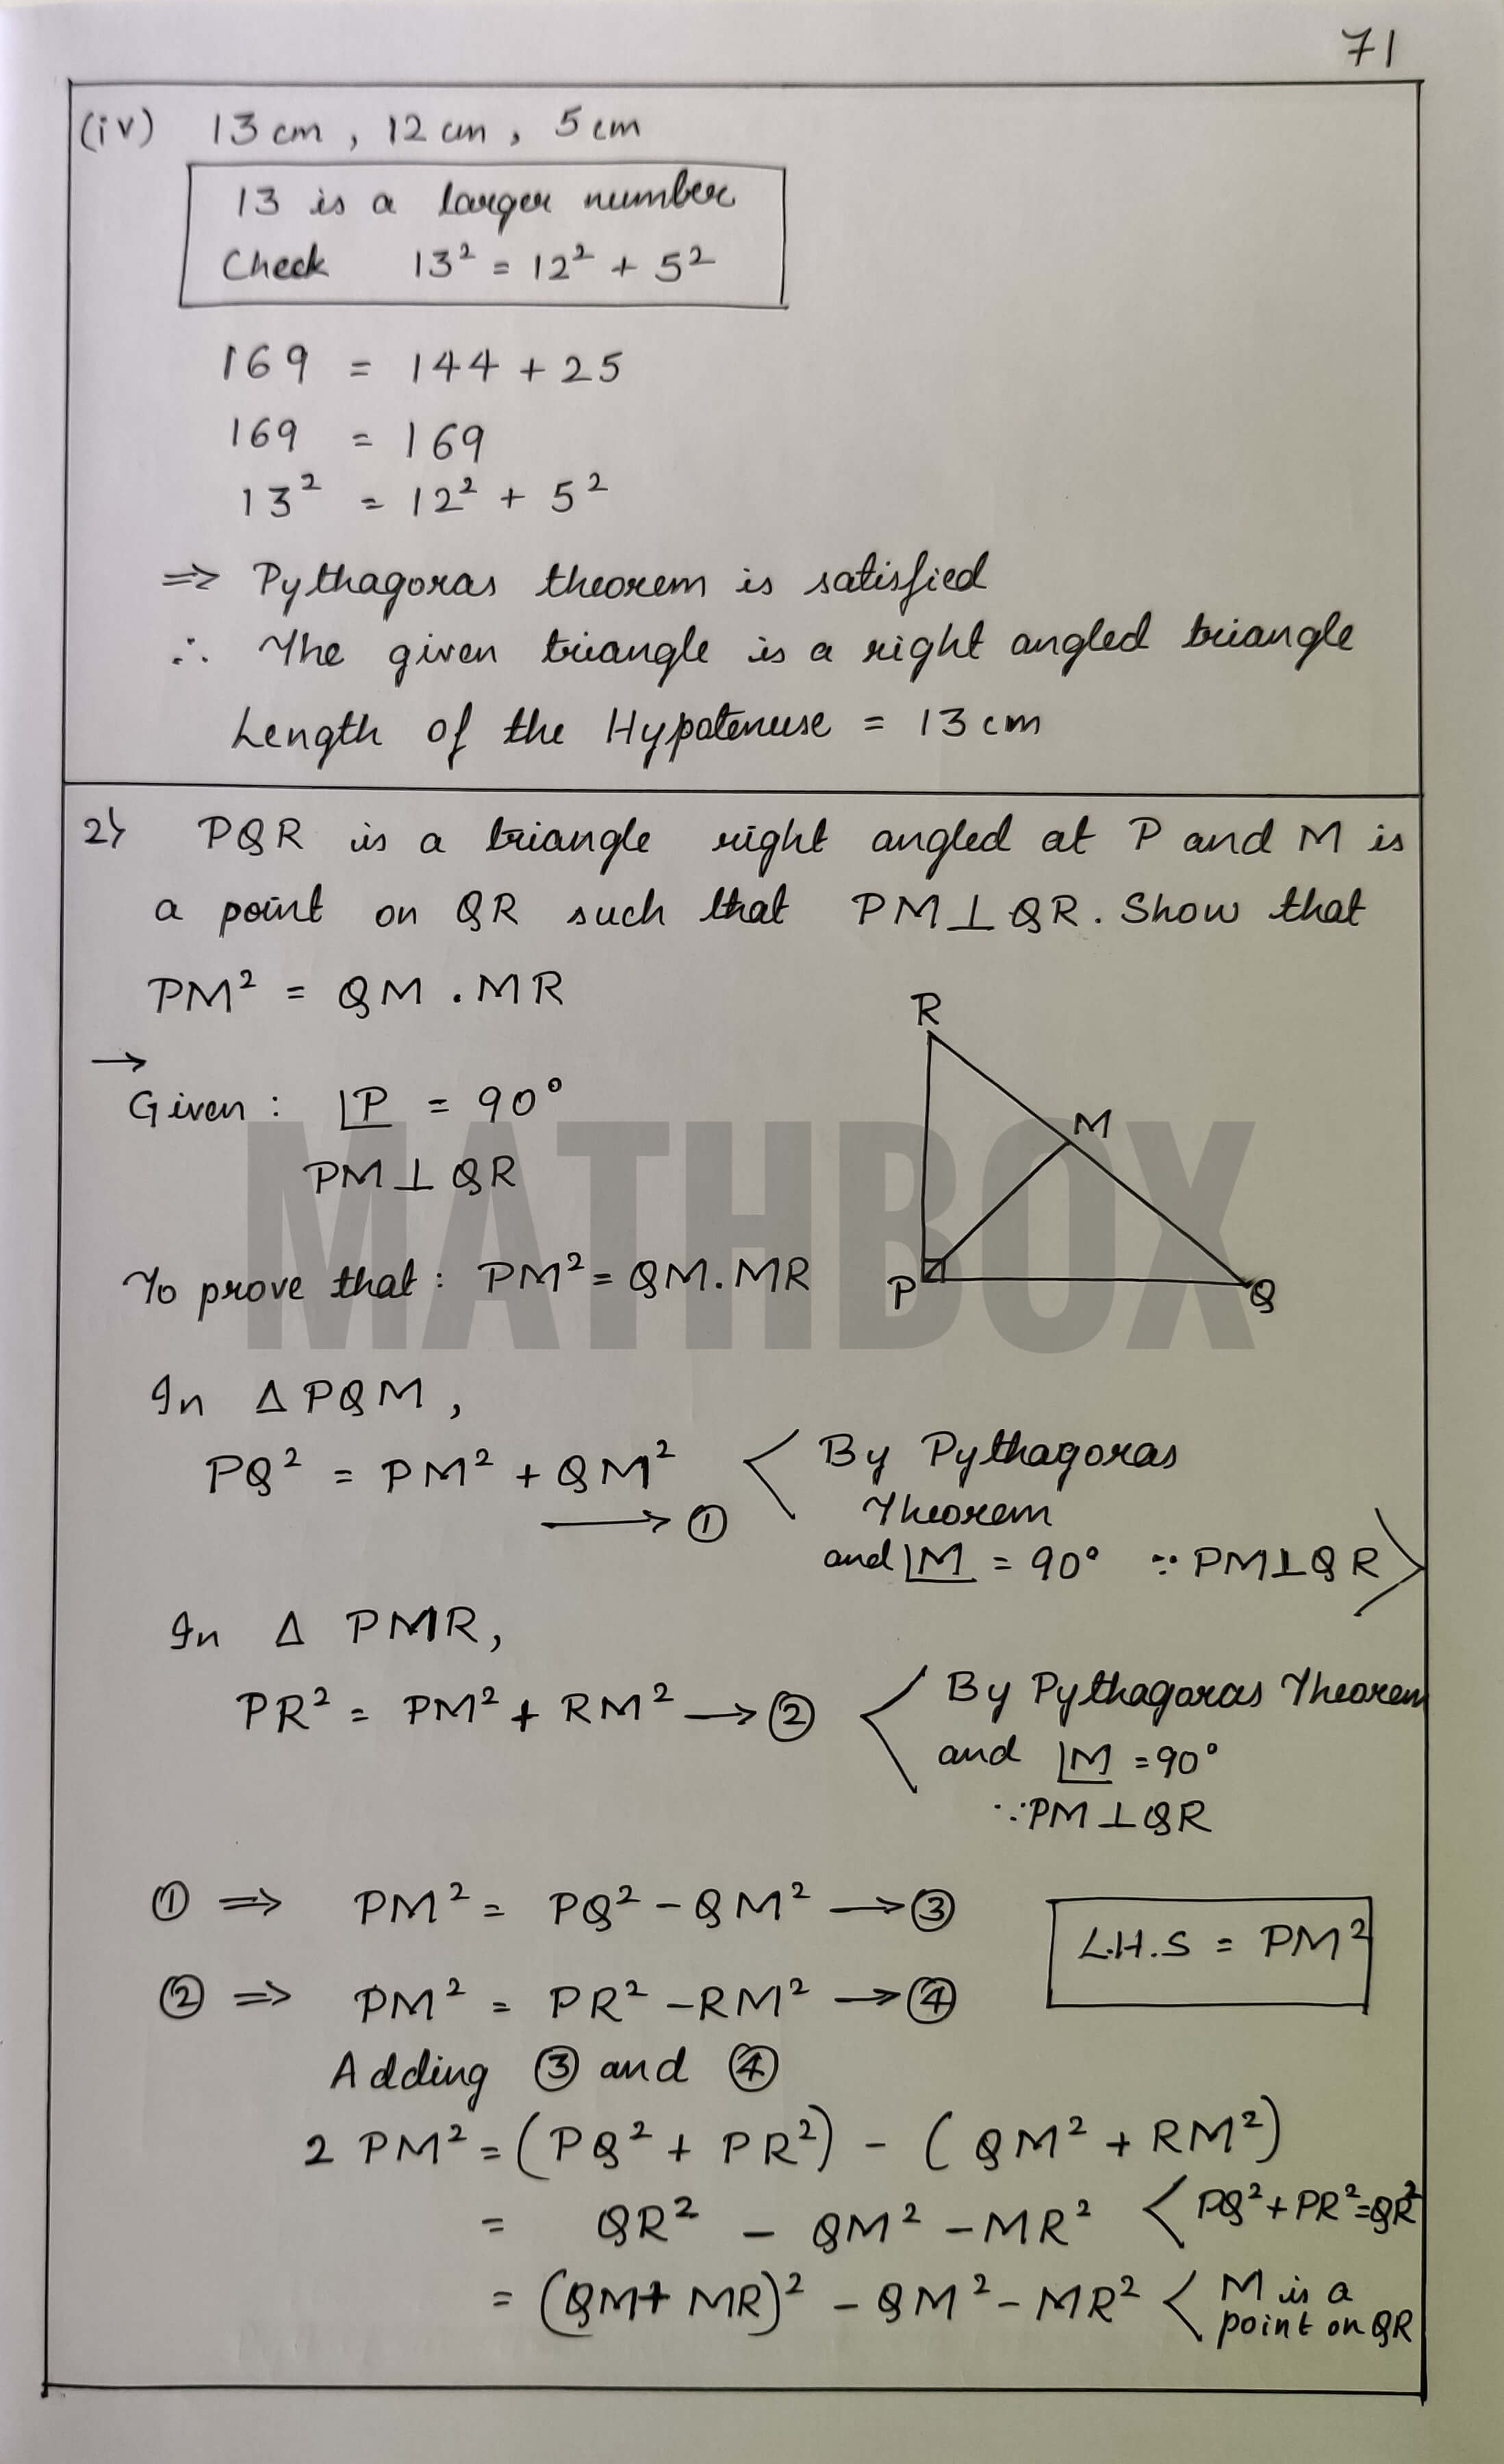 71
(iv) 13 cm, 12 cm, 5 cm
13 is a larger number
Check 13² = 12² + 5²
169 = 144 + 25
169 = 169
13² = 12² + 5²
⇒ Pythagoras theorem is satisfied
∴ The given triangle is a right angled triangle
Length of the Hypotenuse = 13 cm
2) PQR is a triangle right angled at P and M is
a point on QR such that PM⊥QR. Show that
PM² = QM . MR
→
Given: ∠P = 90°
PM ⊥ QR
To prove that: PM² = QM.MR
R
M
P
Q
MATHBOX
In Δ PQM,
PQ² = PM² + QM² < By Pythagoras
Theorem
→ ①
and ∠M = 90° ∵ PM⊥QR >
In Δ PMR,
PR² = PM² + RM² → ② < By Pythagoras Theorem
and ∠M = 90°
∵ PM ⊥ QR
① ⇒ PM² = PQ² - QM² → ③
L.H.S = PM²
② ⇒ PM² = PR² - RM² → ④
Adding ③ and ④
2 PM² = (PQ² + PR²) - (QM² + RM²)
= QR² - QM² - MR² < PQ² + PR² = QR²
= (QM + MR)² - QM² - MR² < M is a
point on QR